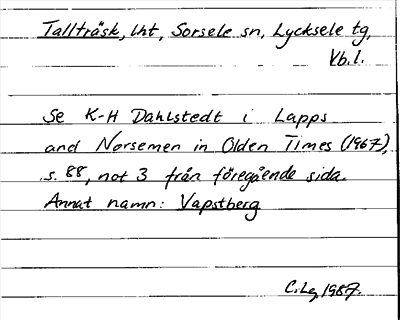 Tallträsk, lht, Sorsele sn, Lycksele tg,
Vb. l.
Se K-H Dahlstedt i Lapps
and Norsemen in Olden Times (1967),
s. 88, not 3 från föregående sida.
Annat namn: Vapstberg
C. Lg 1987.